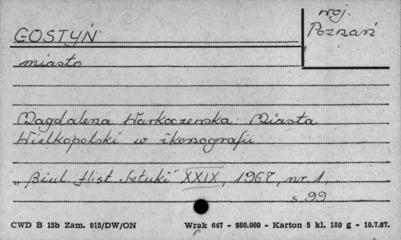 woj.
Poznań
GOSTYŃ
miasto
Magdalena Warkoczewska Miasta
Wielkopolski w ikonografii
„Biul. Hist. Sztuki" XXIX, 1967, nr 1,
s. 99
CWD B 15b Zam. 915/DW/ON Wrak 647 - 950.000 - Karton 5 kl. 180 g - 10.7.67.